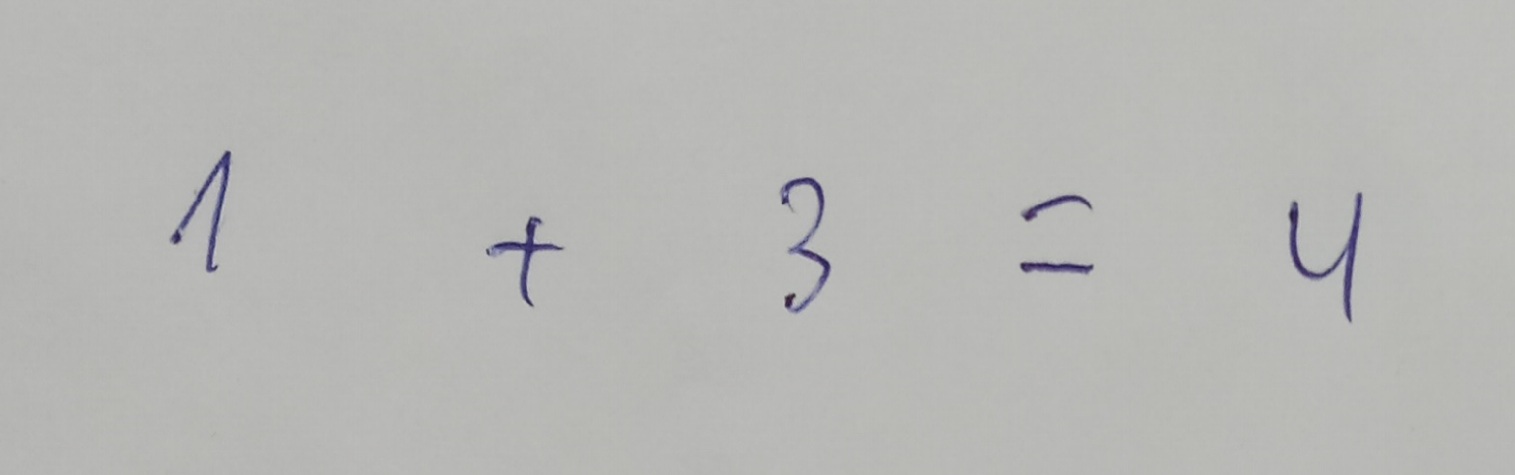 1 + 3 = 4